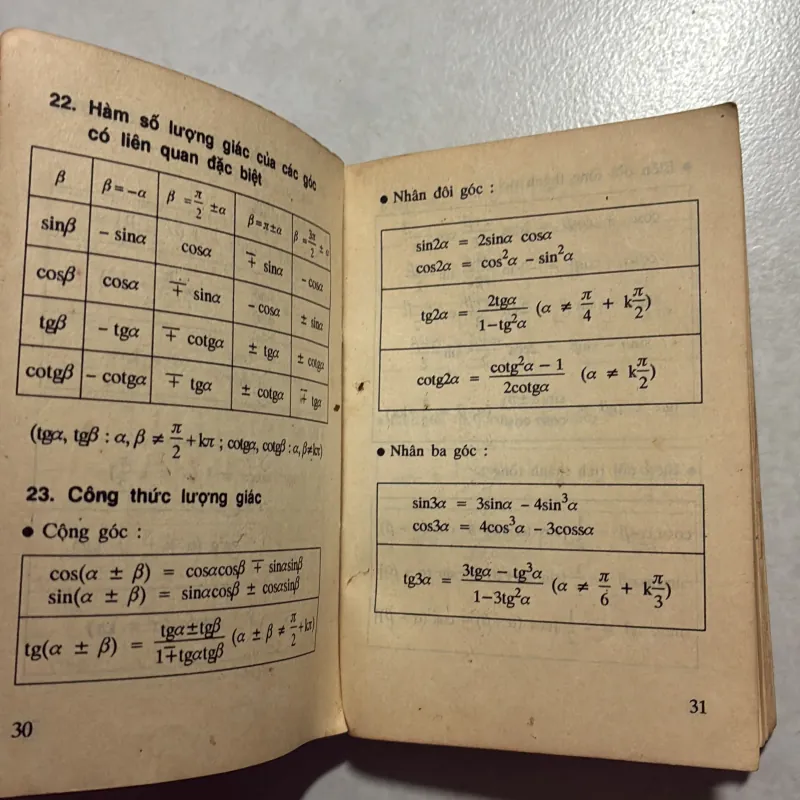 22. Hàm số lượng giác của các góc
có liên quan đặc biệt
β β=−α β = π/2 ±α β=π±α β = 3π/2 ± α
sinβ − sinα cosα ∓ sinα − cosα
cosβ cosα ∓ sinα − cosα ± sinα
tgβ − tgα ∓ cotgα ± tgα ± cotgα
cotgβ − cotgα ∓ tgα ± cotgα ∓ tgα
(tgα, tgβ : α, β ≠ π/2 + kπ ; cotgα, cotgβ : α, β≠kπ)
23. Công thức lượng giác
● Cộng góc :
cos(α ± β) = cosαcosβ ∓ sinαsinβ
sin(α ± β) = sinαcosβ ± cosαsinβ
tg(α ± β) = tgα±tgβ / 1∓tgαtgβ (α ± β ≠ π/2 +kπ)
30
● Nhân đôi góc :
sin2α = 2sinα cosα
cos2α = cos²α − sin²α
tg2α = 2tgα / 1−tg²α (α ≠ π/4 + kπ/2)
cotg2α = cotg²α − 1 / 2cotgα (α ≠ kπ/2)
● Nhân ba góc :
sin3α = 3sinα − 4sin³α
cos3α = 4cos³α − 3cossα
tg3α = 3tgα − tg³α / 1−3tg²α (α ≠ π/6 + kπ/3)
31